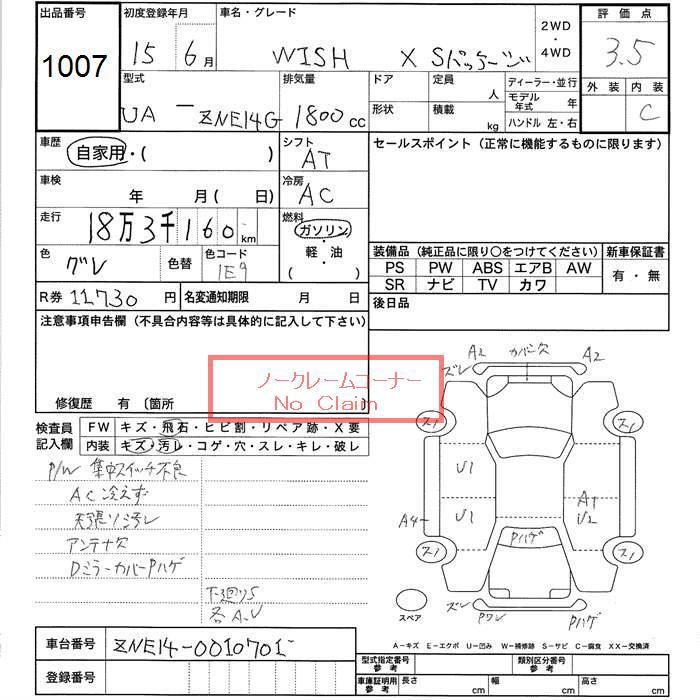 出品番号
1007
初度登録年月
15 6月
車名・グレード
WISH X Sパッケージ
2WD
・
4WD
評価点
3.5
外装 内装
C
型式
UA - ZNE14G
排気量
1800cc
ドア
形状
定員 人
積載 kg
ディーラー・並行
モデル年式 年
ハンドル 左・右
車歴
自家用・( )
シフト
AT
セールスポイント（正常に機能するものに限ります）
車検
年 月( 日)
冷房
AC
走行
18万3千160km
燃料
ガソリン
・
軽・油
( )
色
グレ
色替
色コード
1E9
装備品（純正品に限り〇をつけてください）
PS PW ABS エアB AW
SR ナビ TV カワ
新車保証書
有・無
R券 11730円
名変通知期限 月 日
後日品
注意事項申告欄（不具合内容等は具体的に記入して下さい）
ノークレームコーナー
No Claim
修復歴 有 〔箇所
検査員
記入欄
FW キズ・飛石・ヒビ割・リペア跡・X要
内装 キズ・汚レ・コゲ・穴・スレ・キレ・破レ
P/W 集中スイッチ不良
AC冷えず
天張リ汚レ
アンテナ欠
DミラーカバーPハゲ
下廻りS
各A.U
ズレ A2 カバー欠 A2
スノ スノ
U1
U1
A1
U2
A4
Pハゲ
スノ スノ
スペア
ズレ Pワレ Pハゲ
A－キズ E－エクボ U－凹み W－補修跡 S－サビ C－腐食 XX－交換済
車台番号
ZNE14-0010701
登録番号
型式指定番号
参考
類別区分番号
参考
車庫証明用
参考
長さ cm 幅 cm 高さ cm